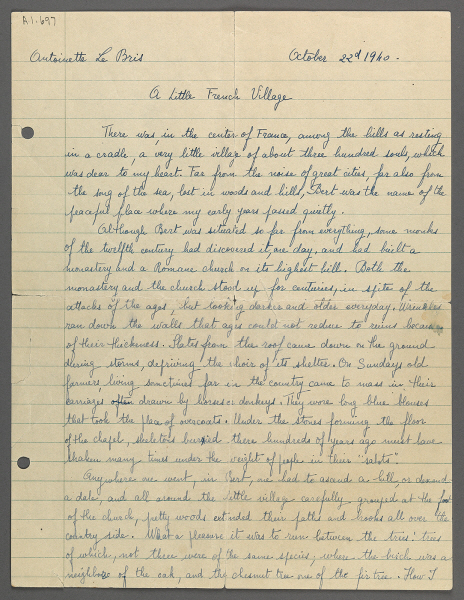 A.1.697
Antoinette Le Bris October 22d 1940.
A Little French Village
There was, in the center of France, among the hills as resting
in a cradle, a very little village of about three hundred souls, which
was dear to my heart. Far from the noise of great cities, far also from
the song of the sea, lost in woods and hills, Bert was the name of the
peaceful place where my early years passed quietly.
Although Bert was situated so far from everything, some monks
of the twelfth century had discovered it, one day, and had built a
monastery and a Romane church on its highest hill. Both the
monastery and the church stood up for centuries, in spite of the
attacks of the ages, but looking darker and older everyday. Wrinkles
ran down the walls that ages could not reduce to ruins because
of their thickness. Slates from the roof came down on the ground
during storms, depriving the choir of its shelter. On Sundays old
farmers, living sometimes far in the country came to mass in their
carriages often drawn by horses or donkeys. They wore long blue blouses
that took the place of overcoats. Under the stones forming the floor
of the chapel, skeletons buried there hundreds of years ago must have
shaken many times under the weight of people in their "sabots".
Anywhere one went, in Bert, one had to ascend a hill, or descend
a dale, and all around the little village carefully grouped at the foot
of the church, pretty woods extended their paths and brooks all over the
country side. What a pleasure it was to run between the trees: trees
of which, not three were of the same species; where the birch was a
neighbor of the oak, and the chesnut tree one of the fir tree. How I